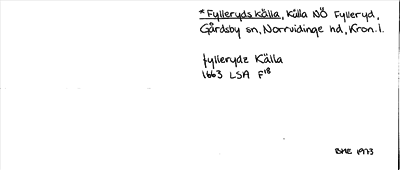 *Fylleryds källa, Källa NÖ Fylleryd,
Gårdsby sn, Norrvidinge hd, Kron. l.
fyllerydz Källa
1663 LSA F18
BME 1973